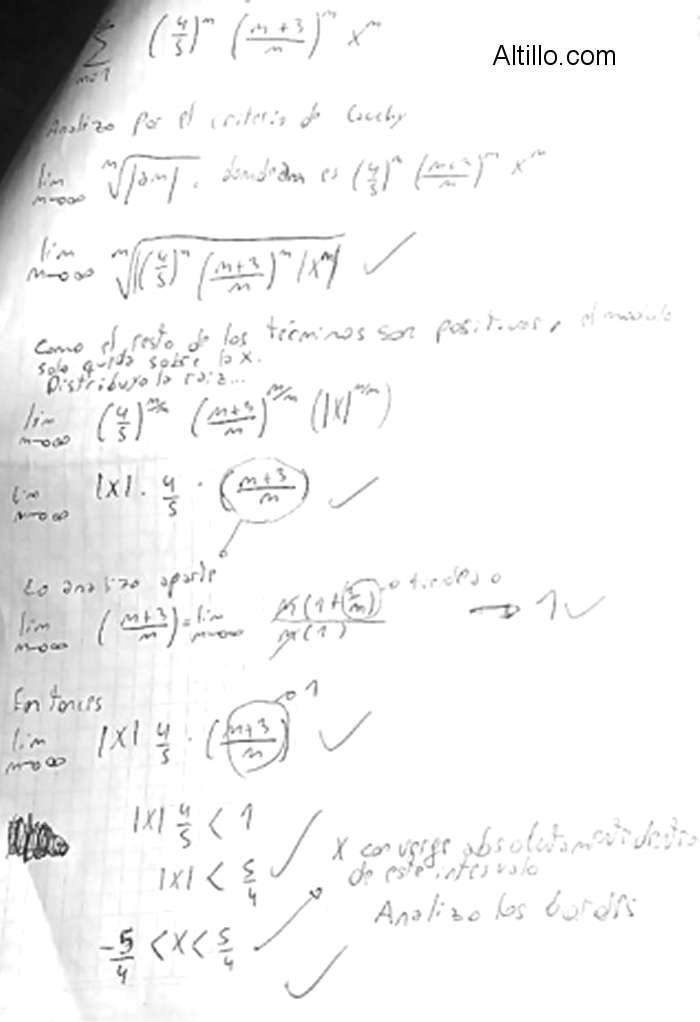 ∑ n=1 (4/5)^n ((n+3)/n)^n x^n
Altillo.com
Analizo por el criterio de Cauchy
lim n→∞ ⁿ√|an| , donde an es (4/5)^n ((n+3)/n)^n x^n
lim n→∞ ⁿ√|(4/5)^n ((n+3)/n)^n |x^n| ✓
Como el resto de los términos son positivos, el módulo
solo queda sobre la x.
Distribuyo la raiz...
lim n→∞ (4/5)^(n/n) ((n+3)/n)^(n/n) (|x|^(n/n))
lim n→∞ |x| . 4/5 . ((n+3)/n) ✓
Lo analizo aparte
lim n→∞ ((n+3)/n) = lim n→∞ n(1+(3/n)) / n(1) → 1 ✓
tiende a 0
Entonces
lim n→∞ |x| 4/5 . ((n+3)/n) → 1 ✓
|x| 4/5 < 1
|x| < 5/4 ✓
x converge absolutamente dentro
de este intervalo
Analizo los bordes
-5/4 < x < 5/4 ✓